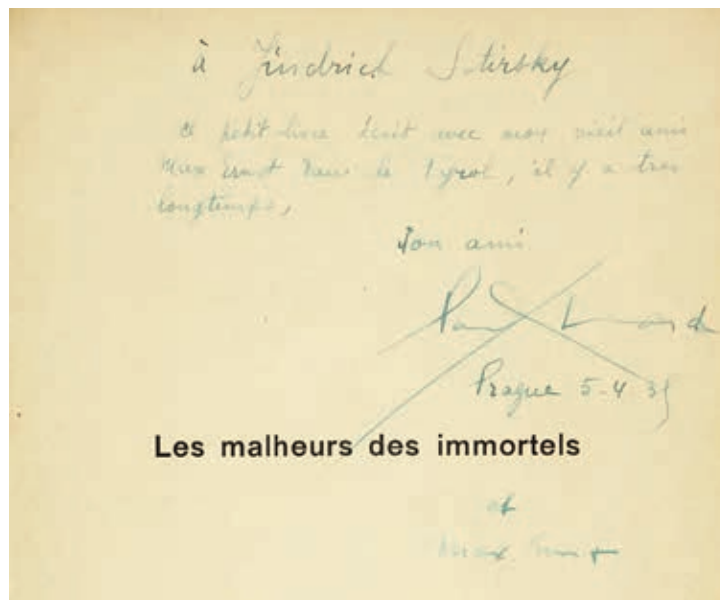 à Jindrich Stirsky
ce petit livre écrit avec mon vieil ami
Max Ernst dans le Tyrol, il y a très
longtemps,
Ton ami
Paul Eluard
Prague 5-4 35
Les malheurs des immortels
et
Max Ernst